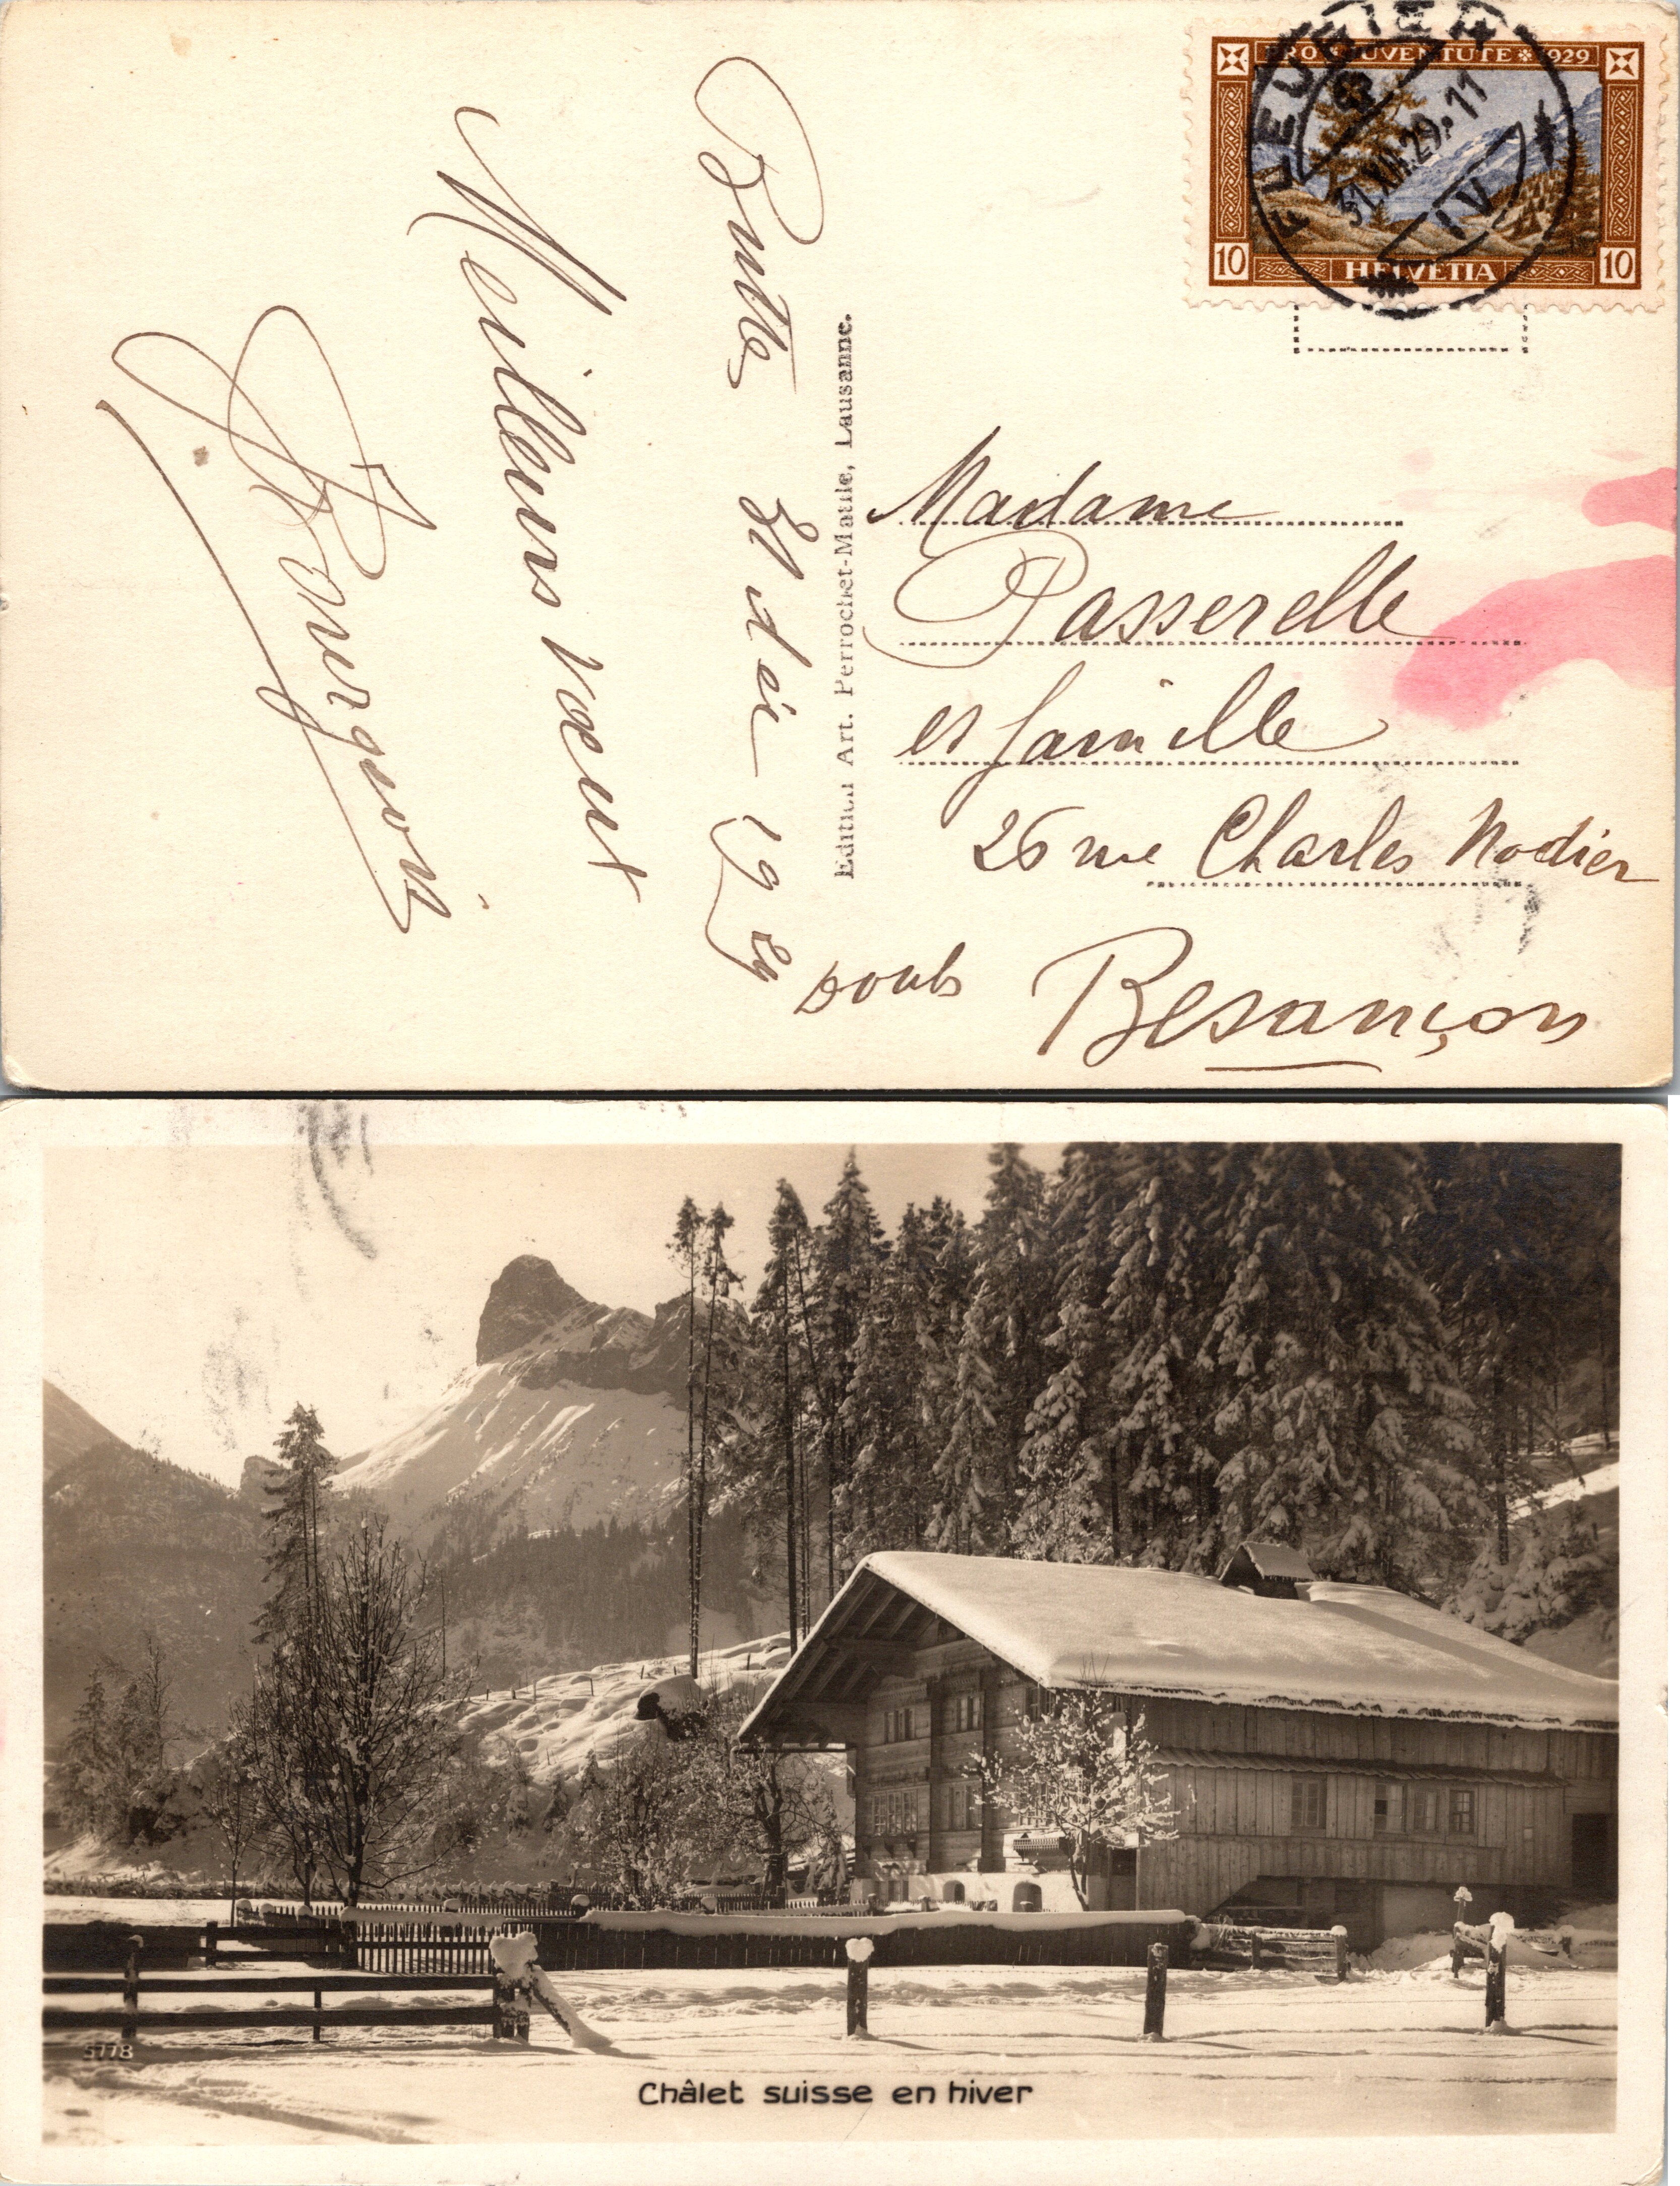 PRO JUVENTUTE 1929
10 HELVETIA 10
FLEURIER
31.XII.29.11
IV
Buttes 31 déc 1929
Meilleurs vœux
Edition Art. Perrochet-Matile, Lausanne.
Madame
Passerelle
et famille
26 rue Charles Nodier
Besançon
Doubs
5778
Châlet suisse en hiver